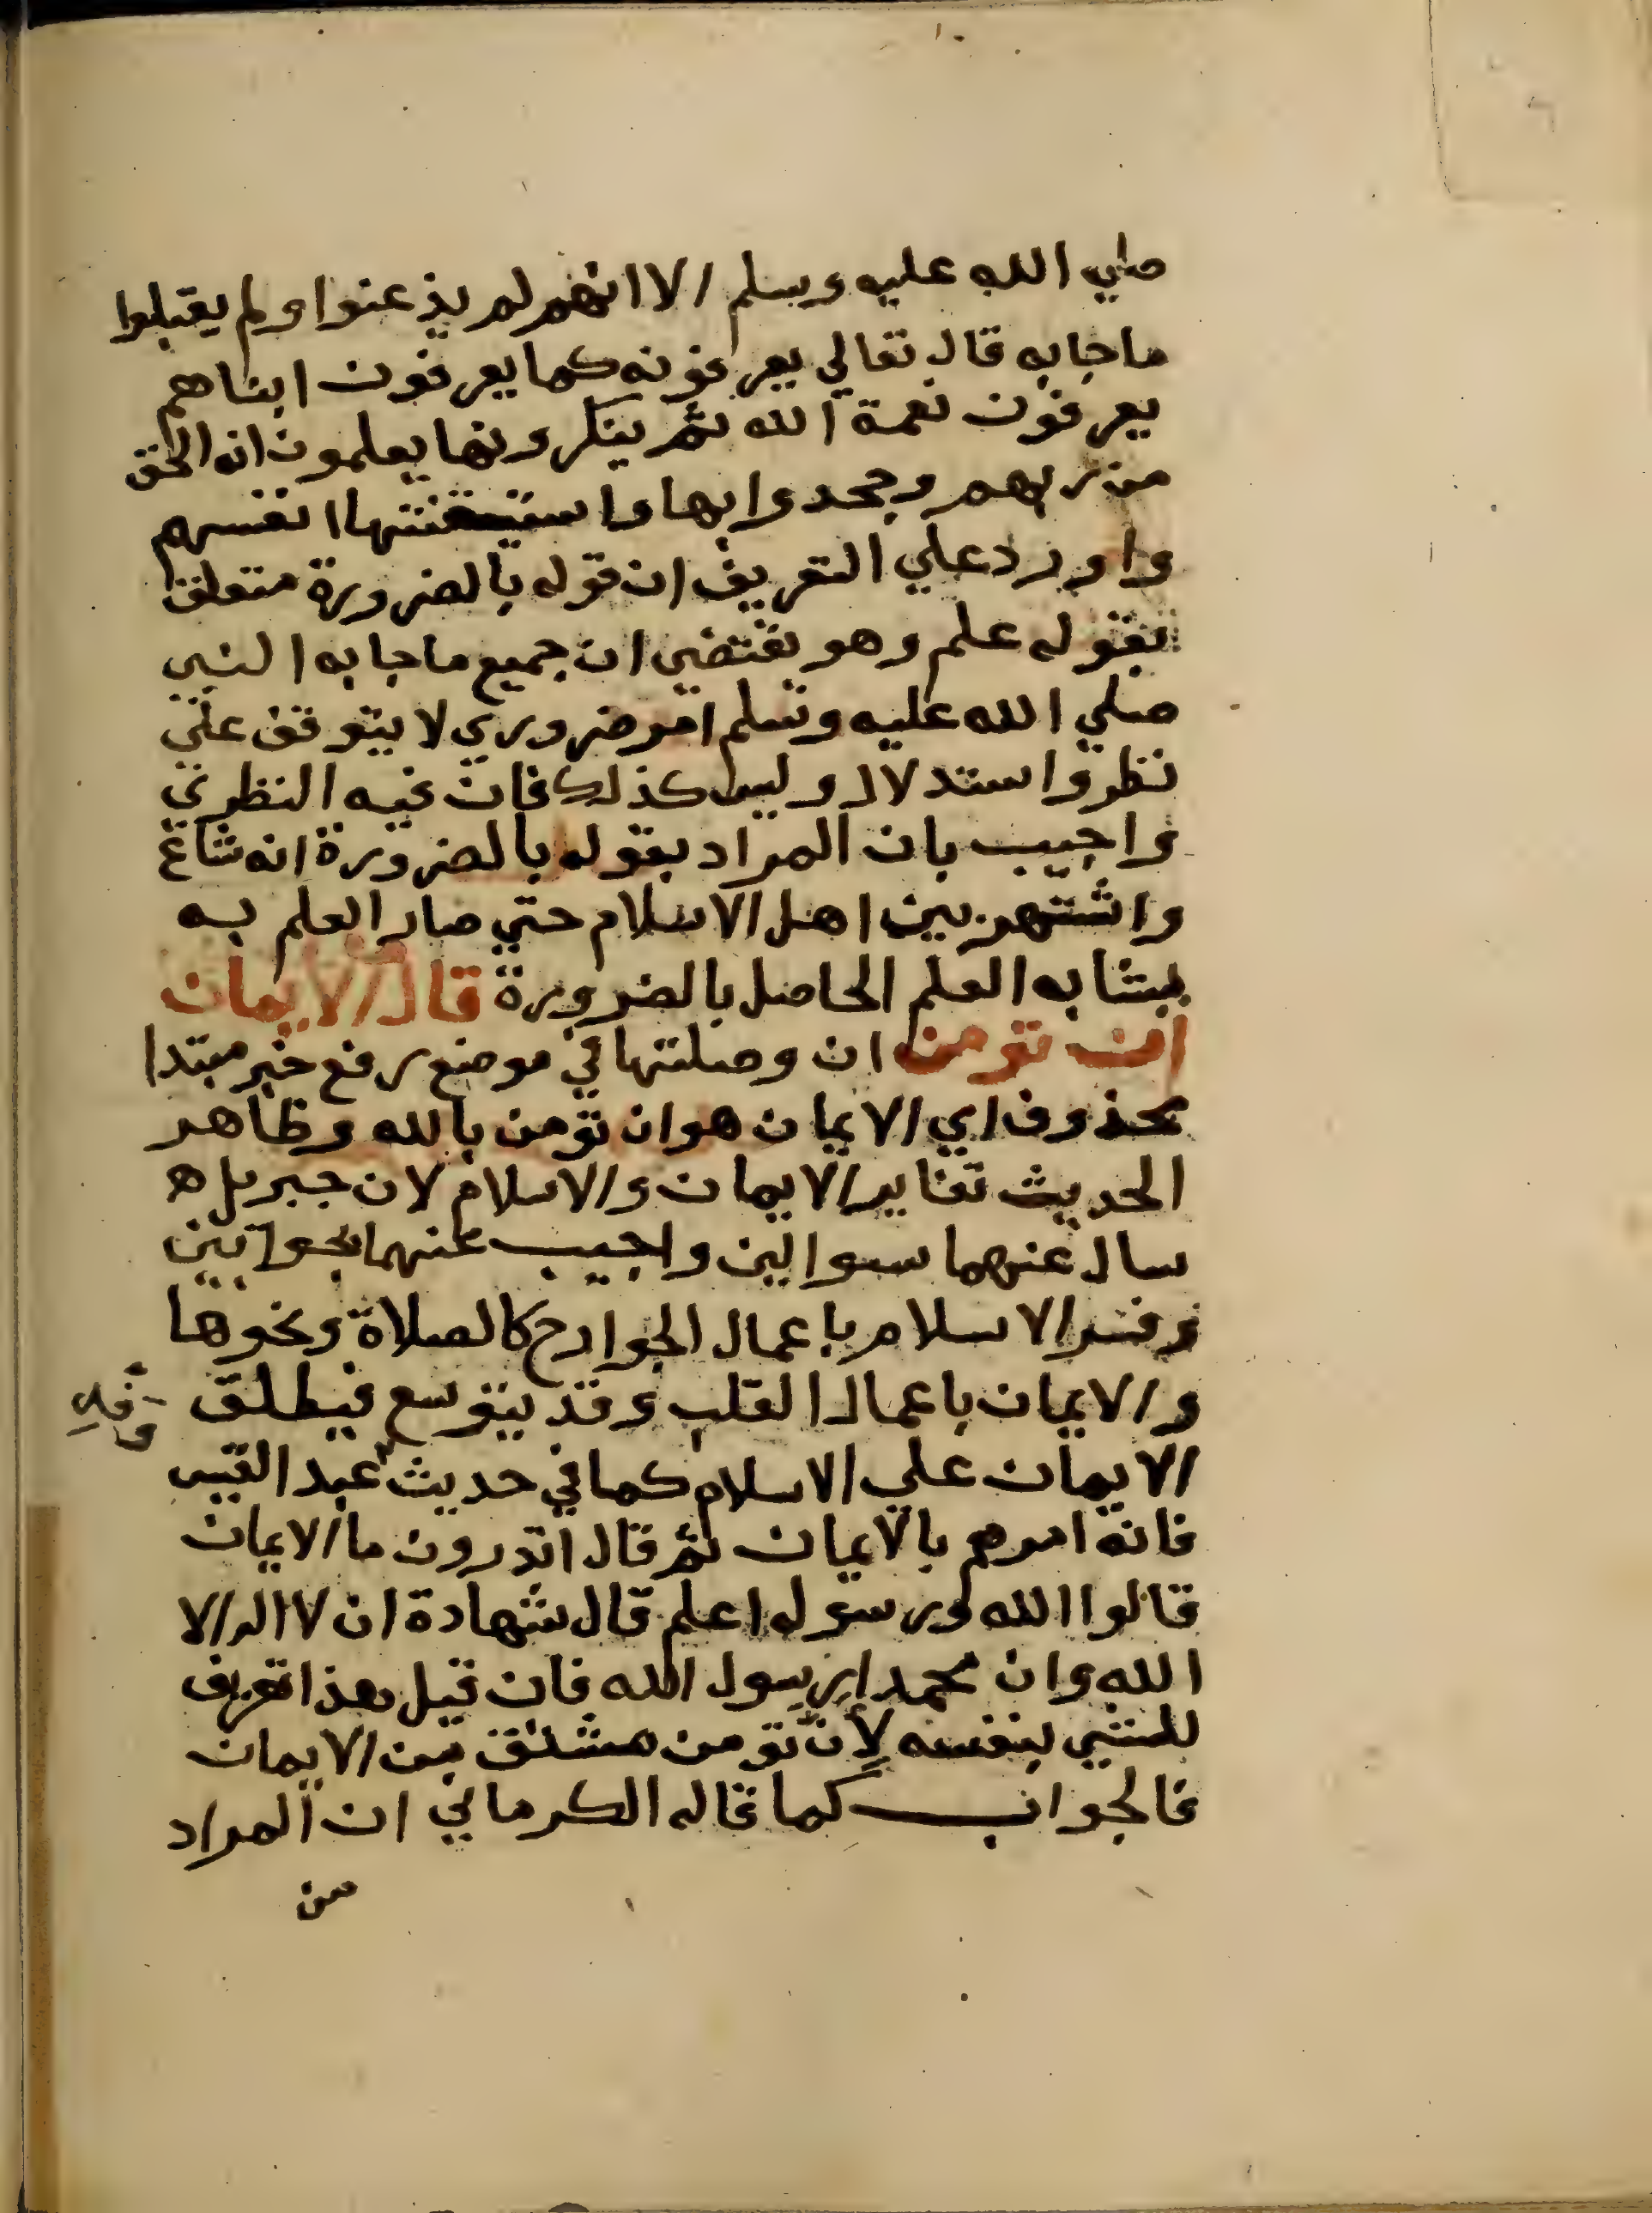 صلي الله عليه وسلم الا انهم لم يذعنوا ولم يقبلوا
ماجابه قال تعالي يعرفونه كما يعرفون ابناهم
يعرفون نعمة الله ثم ينكرونها يعلمون انه الحق
من ربهم وجحدوا بها واستيقنتها انفسهم
واورد علي التعريف ان قوله بالضرورة متعلق
بقوله علم وهو يقتضي ان جميع ماجابه النبي
صلي الله عليه وسلم امر ضروري لا يتوقف علي
نظر واستدلال وليس كذلك فان فيه النظري
واجيب بان المراد بقوله بالضرورة انه شاع
واشتهر بين اهل الاسلام حتي صار العلم به
يشابه العلم الحاصل بالضرورة قال الايمان
ان تومن ان وصلتها في موضع رفع خبر مبتدا
محذوف اي الايمان هو ان تومن بالله وظاهر
الحديث تغاير الايمان والاسلام لان جبريل ه
سال عنهما سوالين واجيب عنهما بجوابين
وفسر الاسلام باعمال الجوارح كالصلاة ونحوها
والايمان باعمال القلب وقد يتوسع فيطلق
وفد
الايمان علي الاسلام كما في حديث عبد القيس
فانه امرهم بالايمان ثم قال اتدرون ما الايمان
قالوا الله ورسوله اعلم قال شهادة ان لا اله الا
الله وان محمدا رسول الله فان قيل هذا تعريف
للشي بنفسه لان تومن مشتق من الايمان
فالجواب كما قاله الكرماني ان المراد
من